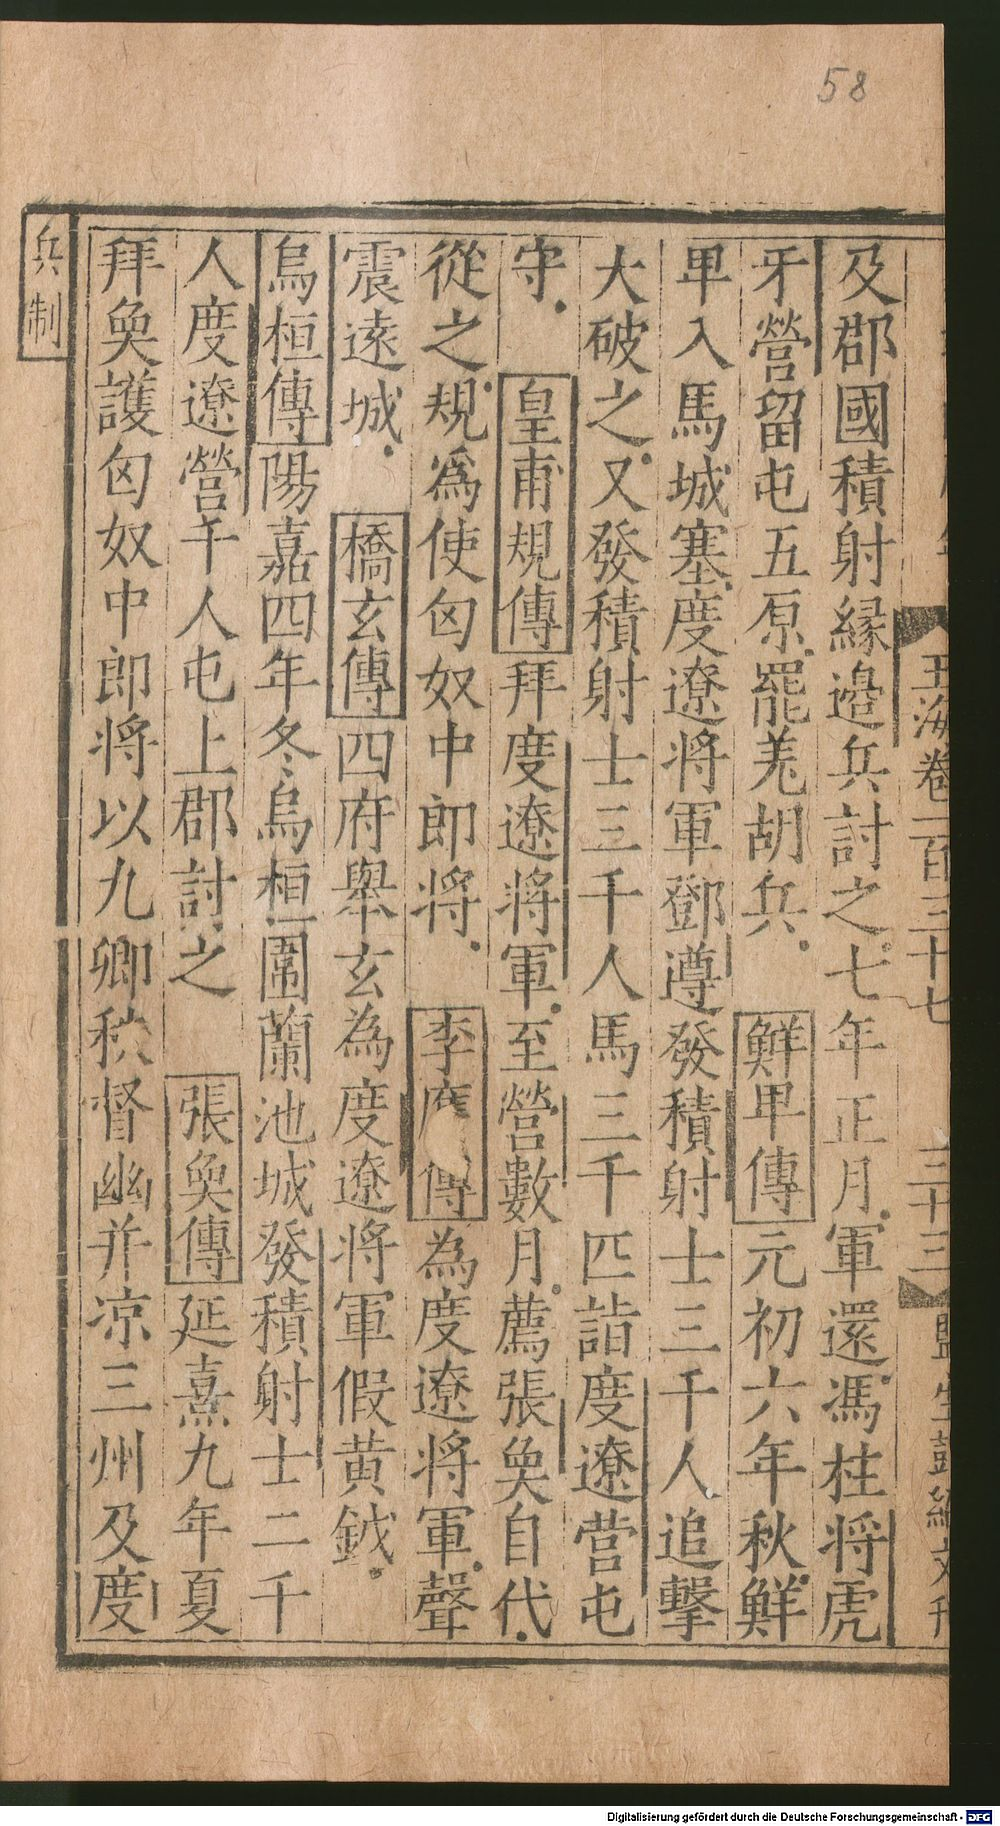 58
玉海卷一百三十七
三十三
監生彭
及郡國積射縁邊兵討之七年正月軍還馮柱將虎
牙營留屯五原罷羌胡兵 鮮甲傳元初六年秋鮮
甲入馬城塞度遼將軍鄧遵發積射士三千人追擊
大破之又發積射士三千人馬三千匹詣度遼营屯
守 皇甫規傳拜度遼將軍至營數月薦張奐自代
從之規爲使匈奴中郎將 李傳為度遼將軍聲
震遠城 橋玄傳四府舉玄為度遼將軍假黄鉞
烏桓傳陽嘉四年冬烏桓圍蘭池城發積射士二千
人度遼營千人屯上郡討之 張奐傳延熹九年夏
拜奐護匈奴中郎將以九卿秩督幽并凉三州及度
兵制
Digitalisierung gefördert durch die Deutsche Forschungsgemeinschaft - DFG